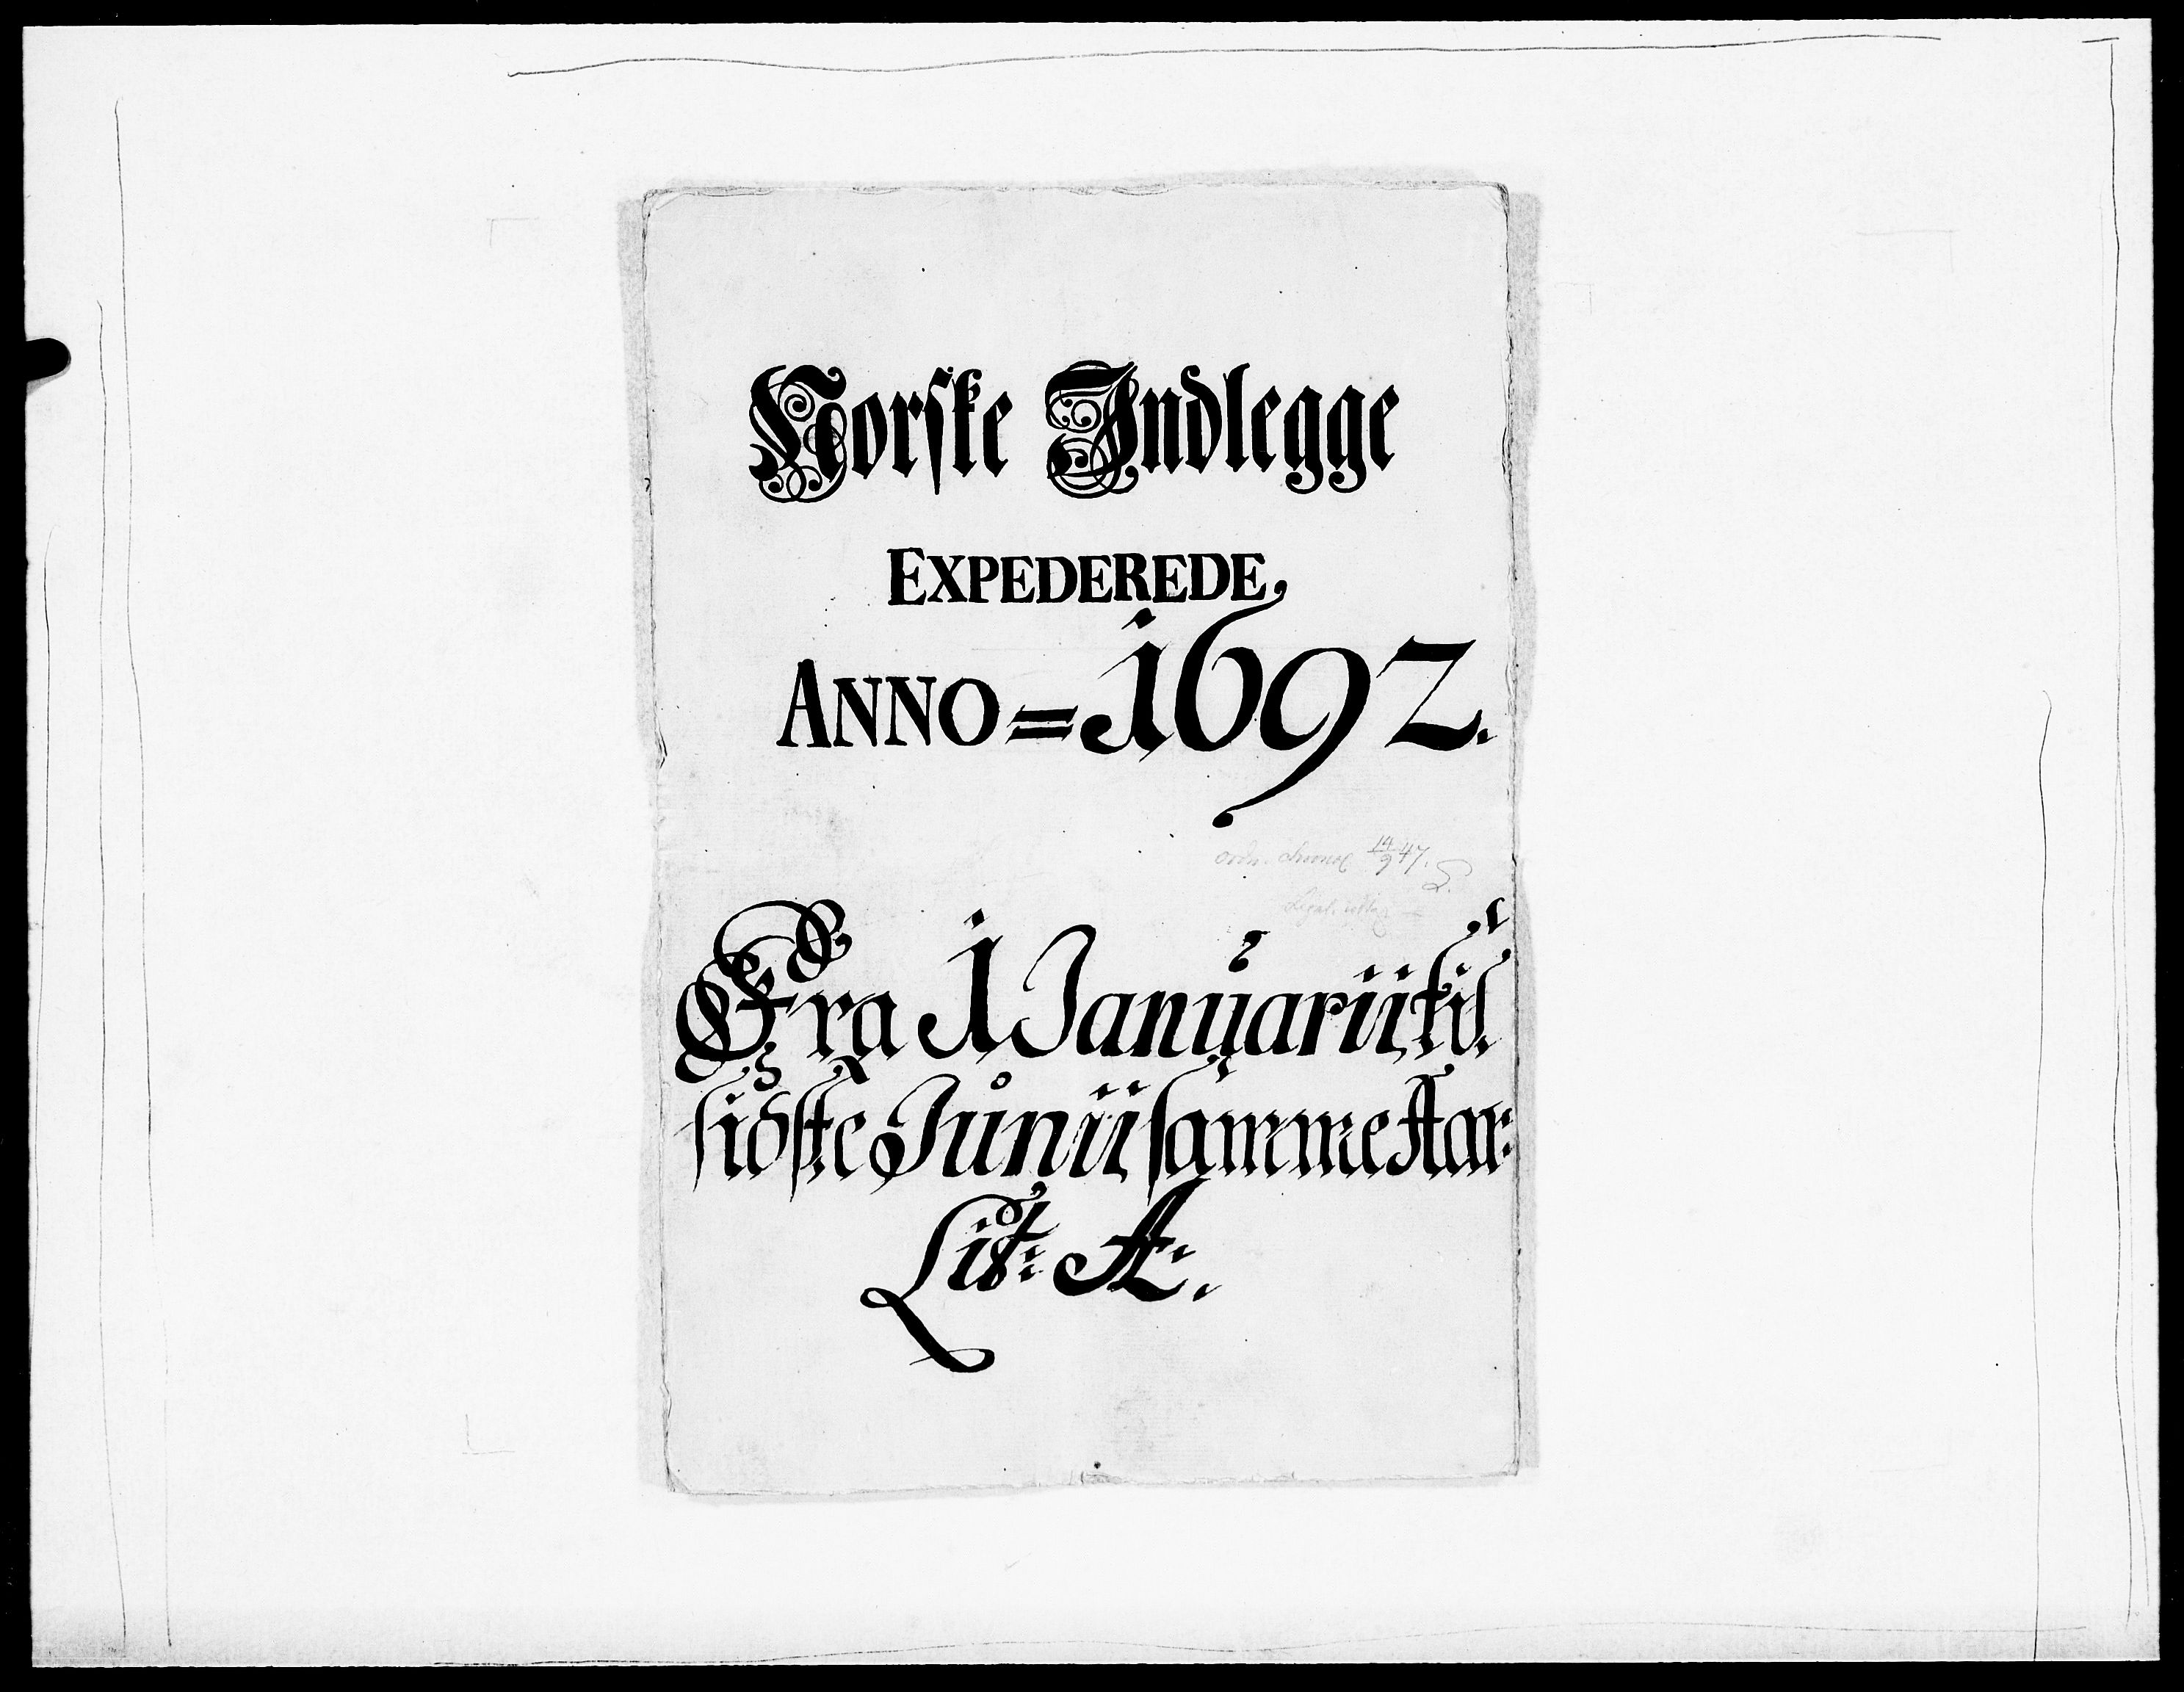 Norske Indlegge
EXPEDEREDE,
ANNO = 1692.
ordn. chronol 14/9 47.
Fra 1 Januarii til
sidste Junii samme Aar:
Lit: A:.